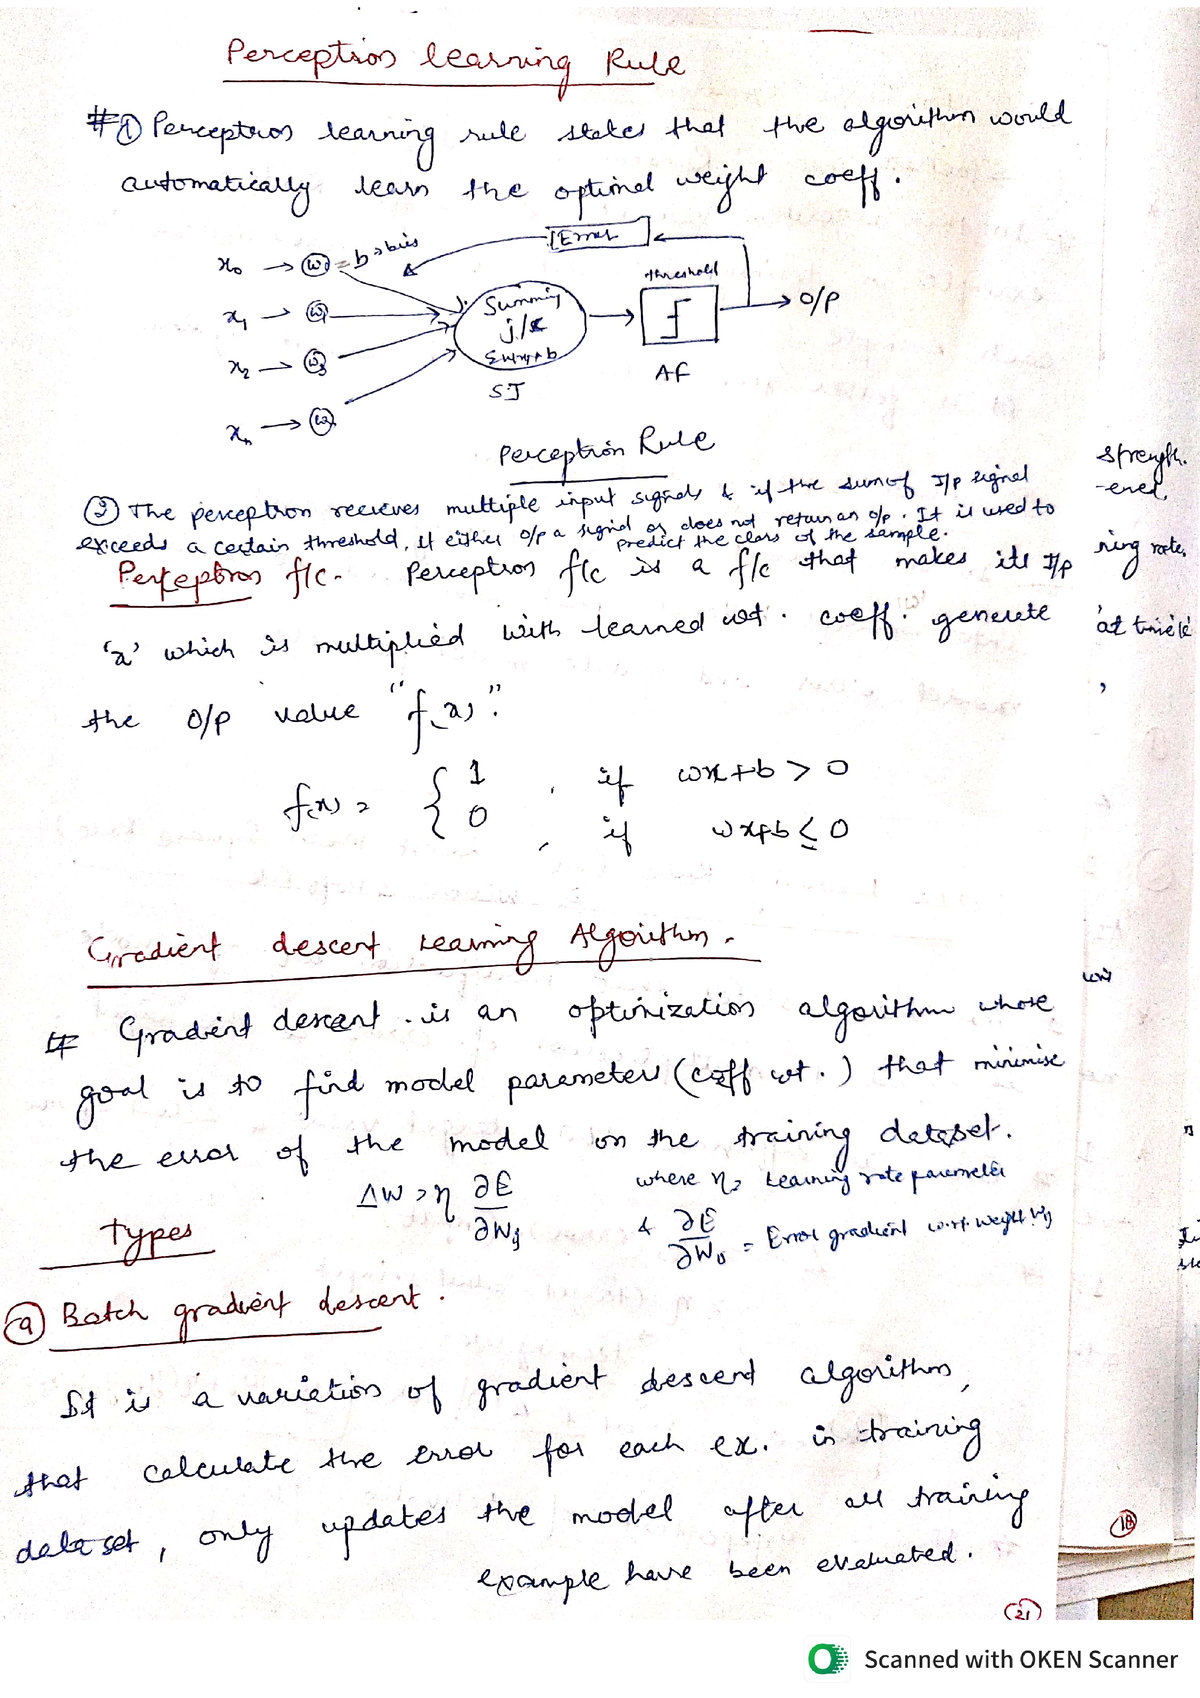 Perceptron learning Rule
#① Perceptron learning rule states that the algorithm would
automatically learn the optimal weight coeff.
x₀ → w₀ = b → bias
Error
threshold
x₁ → w₁
Summing
j/c
Σwixi+b
→ O/P
x₂ →
AF
SJ
xₙ →
Perceptron Rule
strength-
② The perceptron recieves multiple input signals & if the sum of I/p signal
-ened,
exceeds a certain threshold, it either o/p a signal or does not return an o/p. It is used to
predict the class of the sample.
ning rate,
Perceptron f/c - Perceptron f/c is a f/c that makes its I/p
'x' which is multiplied with learned wt. coeff. generate
at time
the O/p value "f(x)".
f(x) = { 1 , if wx+b > 0
0 , if wx+b ≤ 0
Gradient descent Learning Algorithm.
# Gradient descent is an optimization algorithm whose
goal is to find model parameters (coeff wt.) that minimise
the error of the model on the training dataset.
ΔW = η ∂E/∂Wij
where η = Learning rate parameter
& ∂E/∂Wij = Error gradient w.r.t. weight Wij
Types
ⓐ Batch gradient descent.
It is a variation of gradient descent algorithm,
that calculate the error for each ex. in training
data set, only updates the model after all training
example have been evaluated.
18
21
Scanned with OKEN Scanner